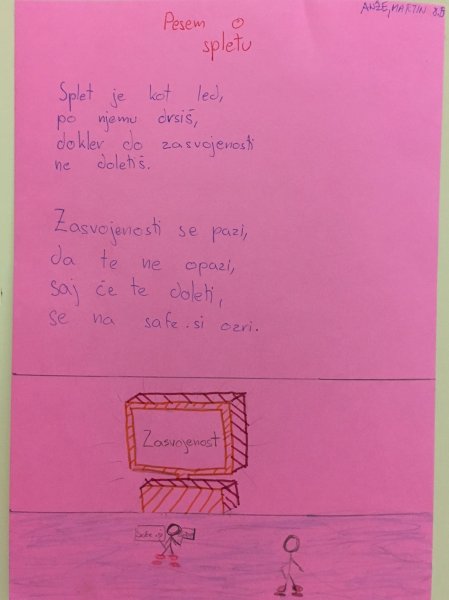 ANŽE, MARTIN 8.B
Pesem o
spletu
Splet je kot led,
po njemu drsiš,
dokler do zasvojenosti
ne doletiš.
Zasvojenosti se pazi,
da te ne opazi,
saj če te doleti,
se na safe.si ozri.
Zasvojenost